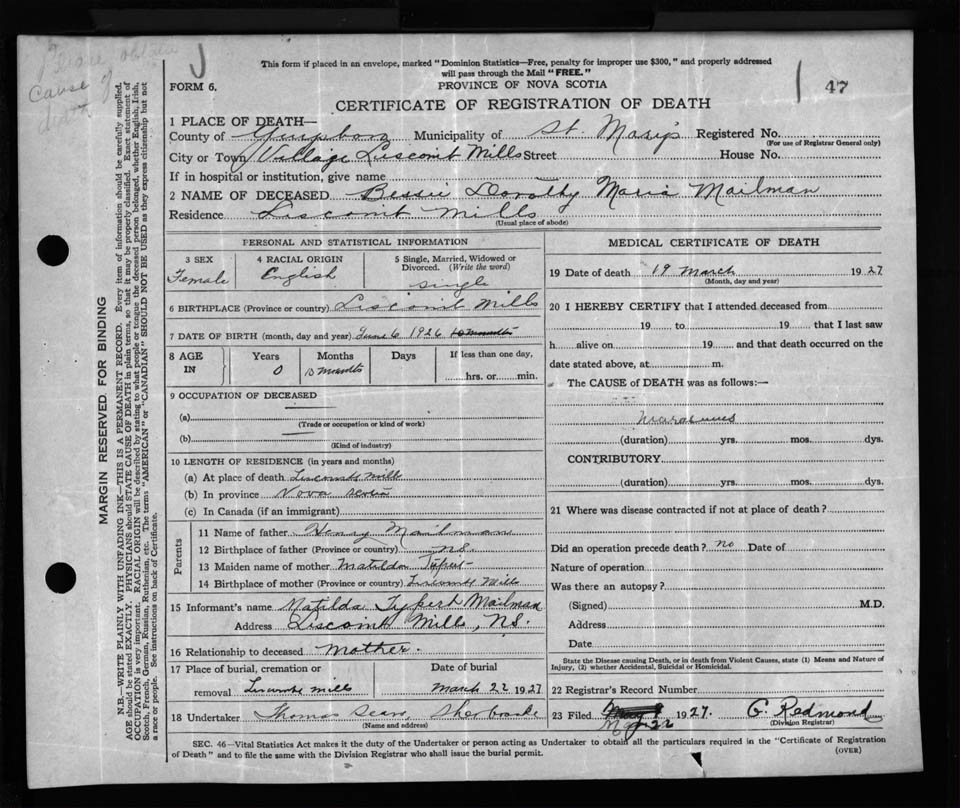 Please obtain
Cause of
death
J
This form if placed in an envelope, marked "Dominion Statistics—Free, penalty for improper use $300," and properly addressed
will pass through the Mail "FREE."
FORM 6.
PROVINCE OF NOVA SCOTIA
47
CERTIFICATE OF REGISTRATION OF DEATH
1 PLACE OF DEATH—
County of Municipality of St. Mary's Registered No.
(For use of Registrar General only)
City or Town Village Liscomb Mills Street House No.
If in hospital or institution, give name
2 NAME OF DECEASED Bessie Dorothy Maria Mailman
Residence Liscomb Mills
(Usual place of abode)
PERSONAL AND STATISTICAL INFORMATION
3 SEX
Female
4 RACIAL ORIGIN
English
5 Single, Married, Widowed or
Divorced. (Write the word)
Single
6 BIRTHPLACE (Province or country) Liscomb Mills
7 DATE OF BIRTH (month, day and year) June 6 1926
8 AGE IN
Years Months Days If less than one day,
0 months hrs. or min.
9 OCCUPATION OF DECEASED
(a)
(Trade or occupation or kind of work)
(b)
(Kind of industry)
10 LENGTH OF RESIDENCE (in years and months)
(a) At place of death Liscomb Mills
(b) In province Nova Scotia
(c) In Canada (if an immigrant)
Parents
11 Name of father Henry Mailman
12 Birthplace of father (Province or country) N.S.
13 Maiden name of mother Matilda
14 Birthplace of mother (Province or country) Liscomb Mills
15 Informant's name Matilda Mailman
Address Liscomb Mills, N.S.
16 Relationship to deceased Mother.
17 Place of burial, cremation or Date of burial
removal Liscomb Mills March 22 1927
18 Undertaker Thomas Sherbrooke
(Name and address)
MEDICAL CERTIFICATE OF DEATH
19 Date of death 19 March 1927
(Month, day and year)
20 I HEREBY CERTIFY that I attended deceased from
19 to 19 that I last saw
h alive on 19 and that death occurred on the
date stated above, at m.
The CAUSE of DEATH was as follows:—
(duration) yrs. mos. dys.
CONTRIBUTORY
(duration) yrs. mos. dys.
21 Where was disease contracted if not at place of death?
Did an operation precede death? no Date of
Nature of operation
Was there an autopsy?
(Signed) M.D.
Address
Date
State the Disease causing Death, or in death from Violent Causes, state (1) Means and Nature of
Injury, (2) whether Accidental, Suicidal or Homicidal.
22 Registrar's Record Number
23 Filed 22 1927. C. Redmond
(Division Registrar)
SEC. 46—Vital Statistics Act makes it the duty of the Undertaker or person acting as Undertaker to obtain all the particulars required in the "Certificate of Registration
of Death" and to file the same with the Division Registrar who shall issue the burial permit.
(OVER)
MARGIN RESERVED FOR BINDING
N.B.—WRITE PLAINLY WITH UNFADING INK—THIS IS A PERMANENT RECORD. Every item of information should be carefully supplied.
AGE should be stated EXACTLY. PHYSICIANS should STATE CAUSE OF DEATH in plain terms, so that it may be properly classified. Exact statement of
OCCUPATION is very important. RACIAL ORIGIN will be described by stating to what people or tongue the deceased person belonged, whether English, Irish,
Scotch, French, German, Russian, Ruthenian, etc. The terms "AMERICAN" or "CANADIAN" SHOULD NOT BE USED as they express citizenship but not
a race or people. See instructions on back of Certificate.